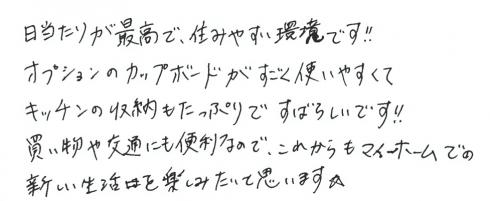 日当たりが最高で、住みやすい環境です!!
オプションのカップボードがすごく使いやすくて
キッチンの収納もたっぷりで すばらしいです!!
買い物や交通にも便利なので、これからもマイホームでの
新しい生活を楽しみたいて思います☆